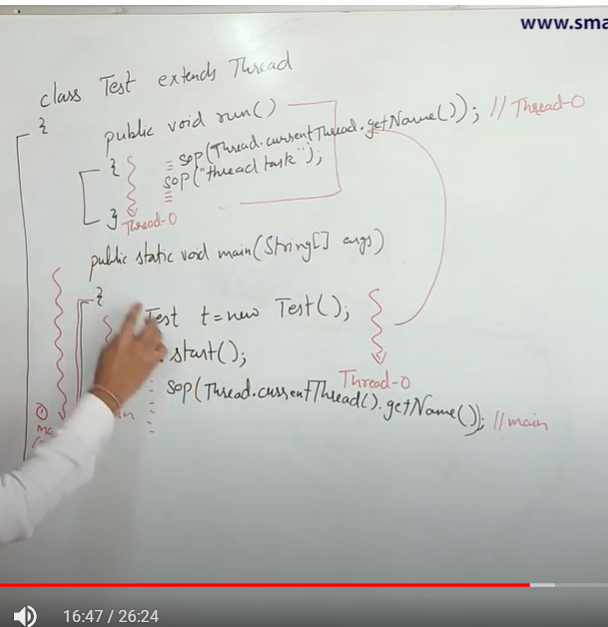 www.sma
class Test extends Thread
{
public void run()
{
sop(Thread.currentThread.getName()); //Thread-0
sop("thread task");
} Thread-0
public static void main(String[] args)
{
Test t=new Test();
start();
Thread-0
sop(Thread.currentThread().getName()); //main
16:47 / 26:24